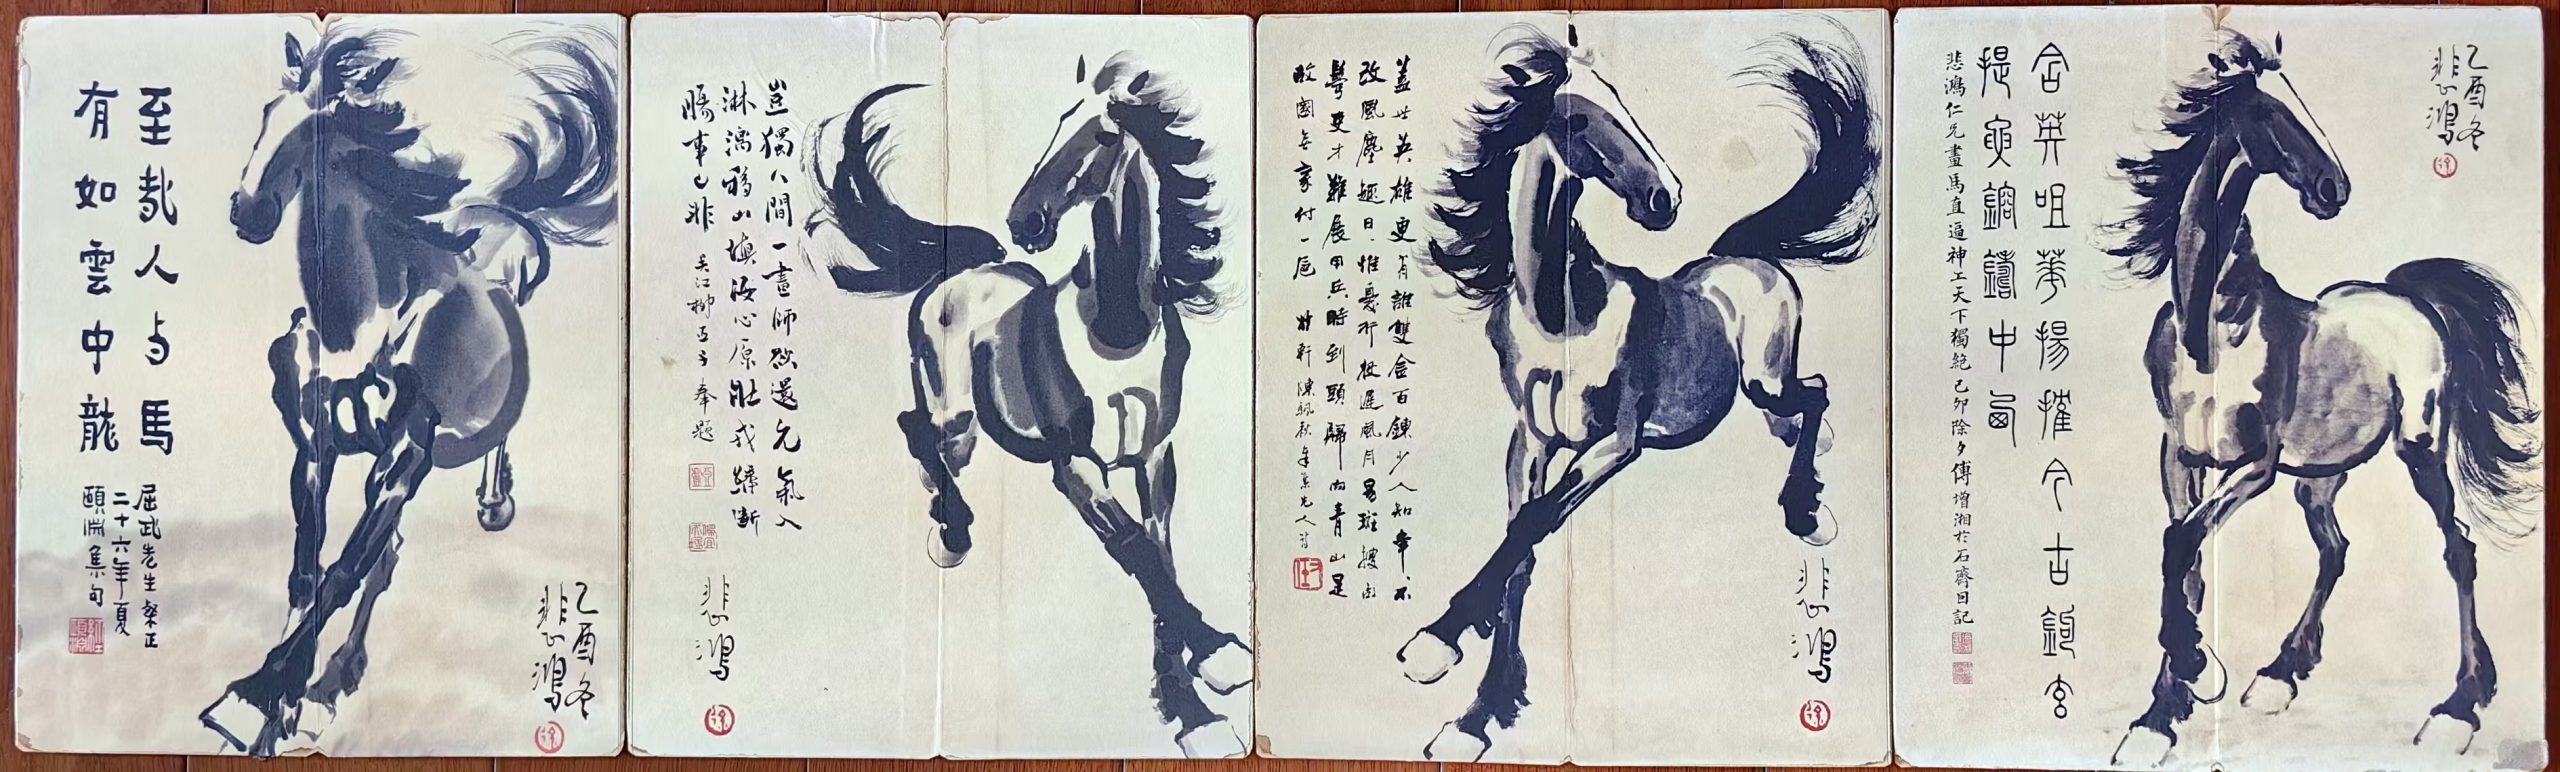 至哉人与馬
有如雲中龍
屈武先生粲正
二十六年夏
頤淵集句
乙酉冬
悲鴻
徐
豈獨人間一畫師欲還元氣入
淋漓移山填海心原壯
事已非
吴江柳亞子奉題
悲鴻
徐
蓋世英雄更有誰雙金百鍊少人知年不
改風塵趣日惟憂行役遲風月易斑搜句
鬢吏才難展用兵時到頭歸向青山是
故國無家付一卮
悲鴻
徐
含英咀華揚搉今古鉤玄
提要鎔鑄中西
悲鴻仁兄畫馬直逼神工天下獨絕己卯除夕傅增湘於石齋日記
乙酉冬
悲鴻
徐